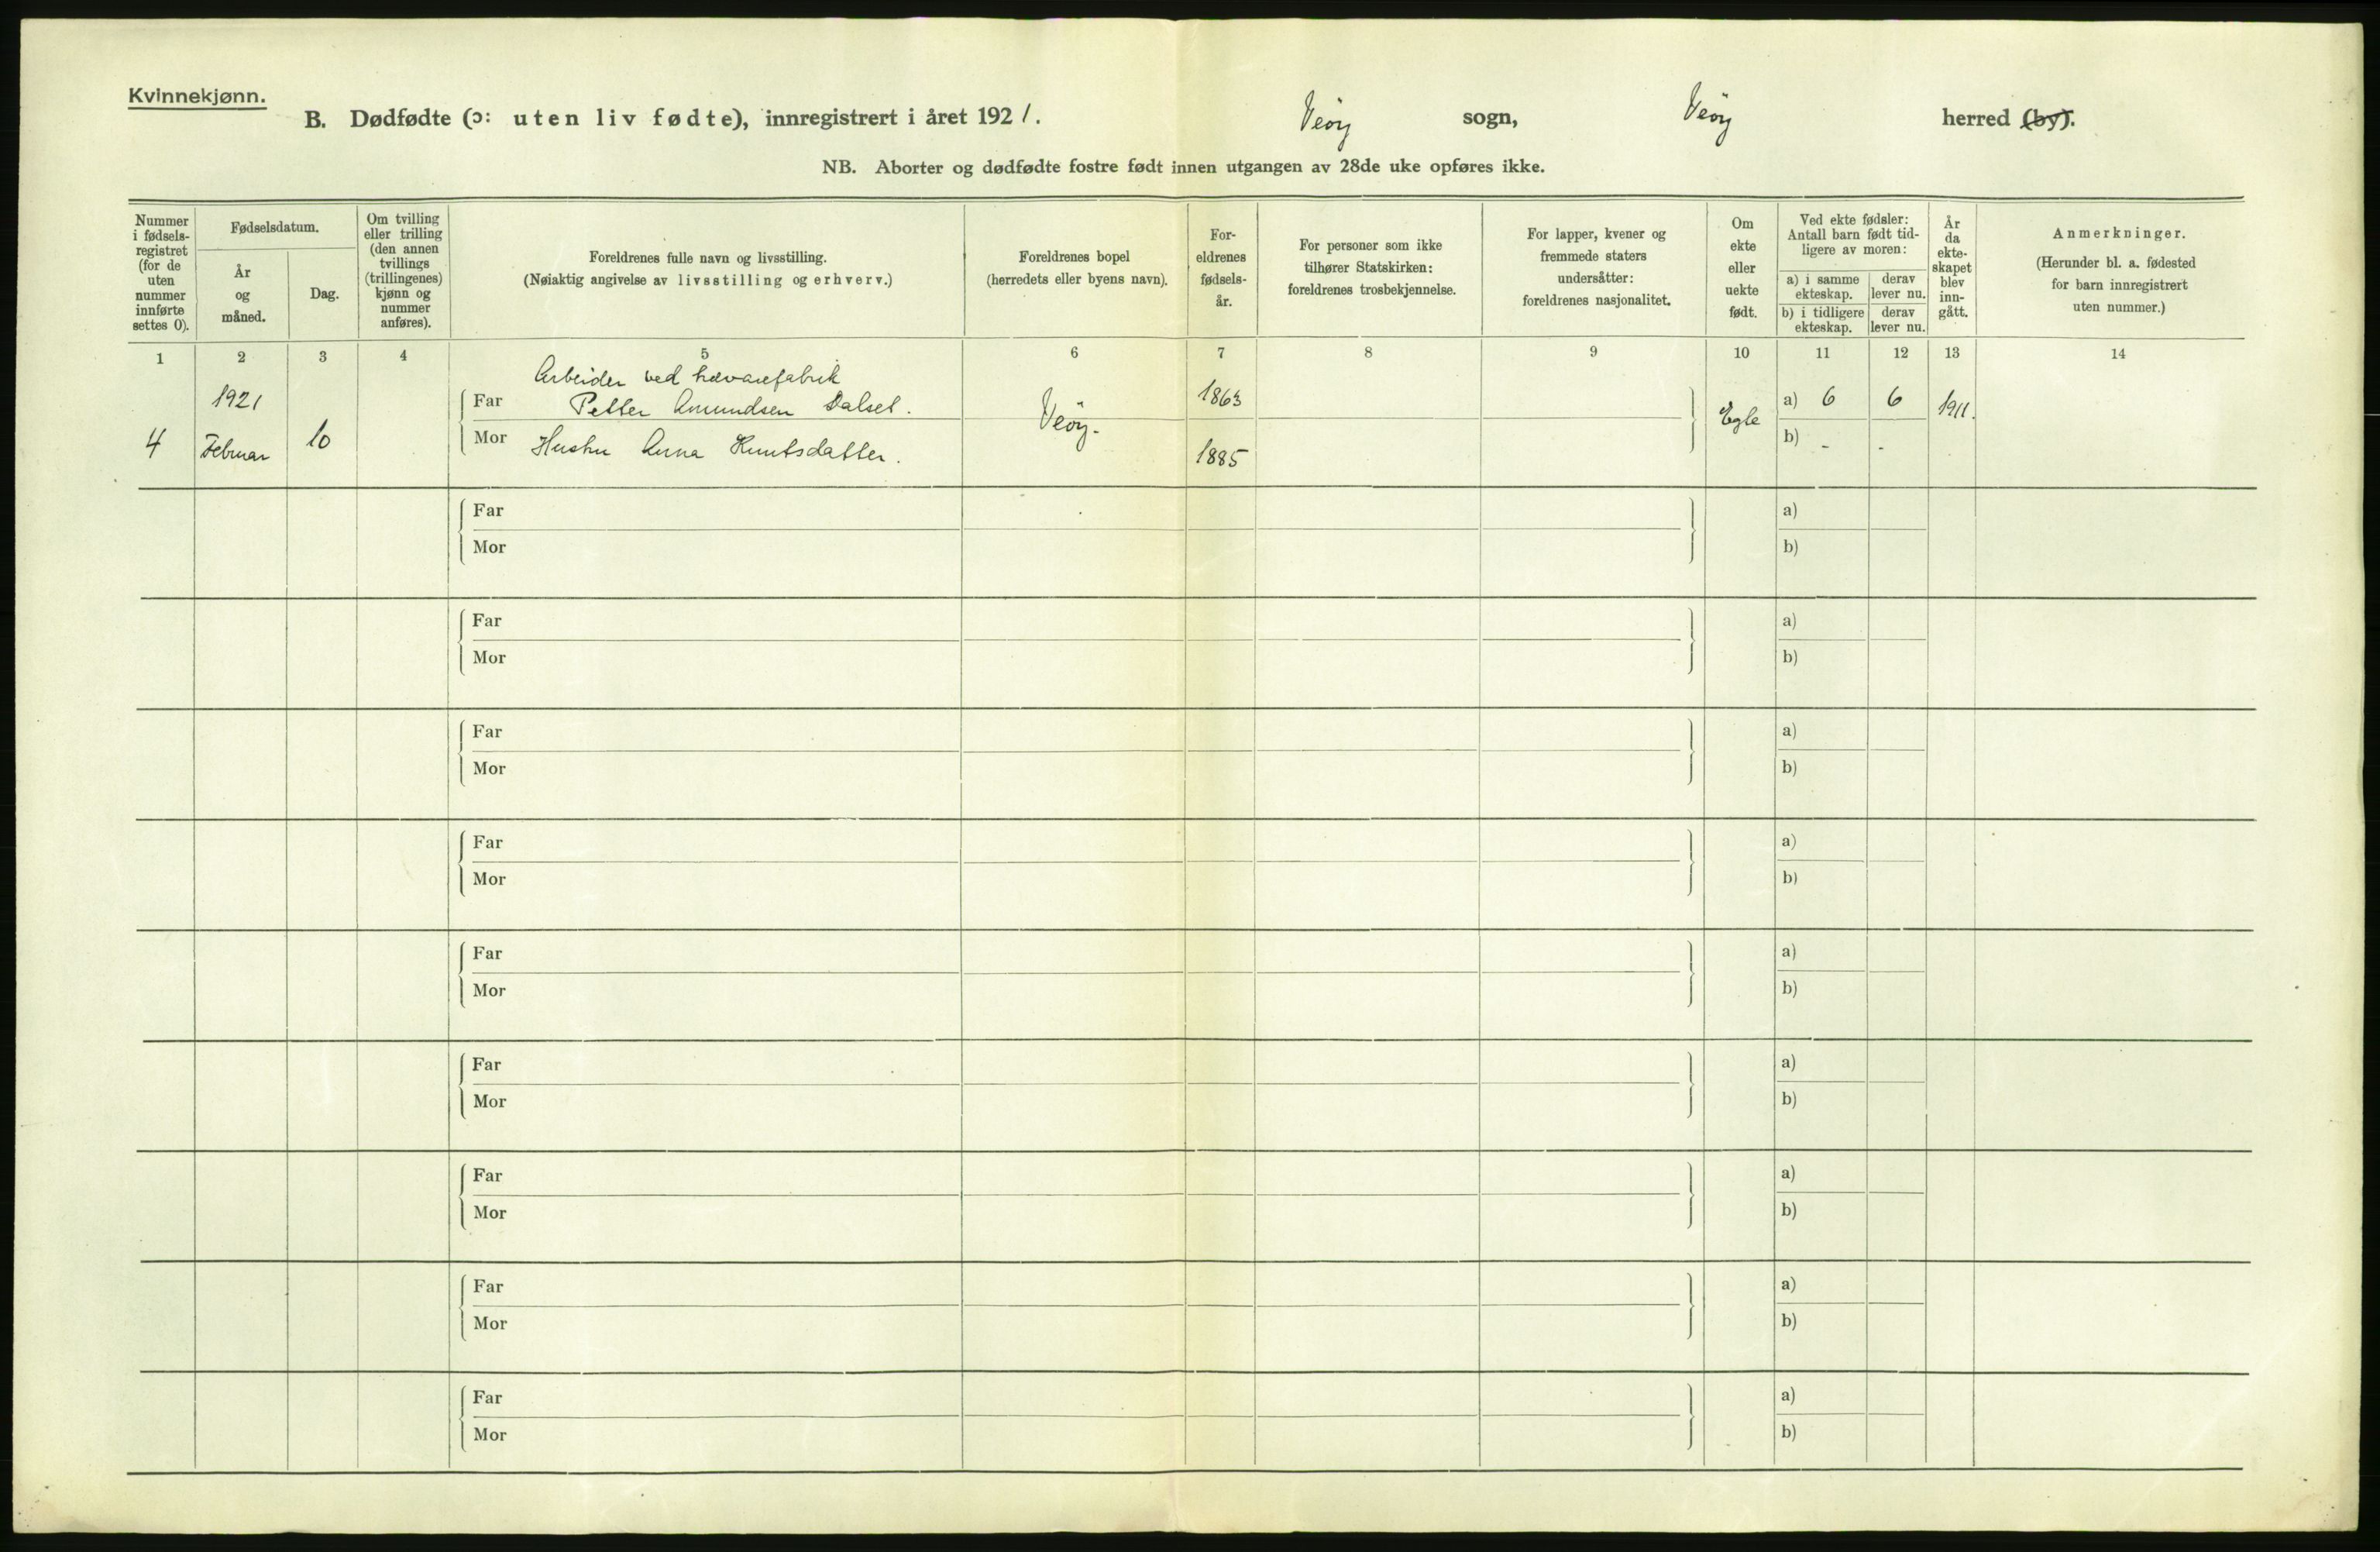 Kvinnekjønn.
B. Dødfødte (ɔ: uten liv fødte), innregistrert i året 1921. Veøy sogn, Veøy herred (by).
NB. Aborter og dødfødte fostre født innen utgangen av 28de uke opføres ikke.
Nummer i fødsels-registret (for de uten nummer innførte settes 0).
Fødselsdatum.
År og måned.
Dag.
Om tvilling eller trilling (den annen tvillings (trillingenes) kjønn og nummer anføres).
Foreldrenes fulle navn og livsstilling.
(Nøiaktig angivelse av livsstilling og erhverv.)
Foreldrenes bopel
(herredets eller byens navn).
For-eldrenes fødsels-år.
For personer som ikke tilhører Statskirken: foreldrenes trosbekjennelse.
For lapper, kvener og fremmede staters undersåtter: foreldrenes nasjonalitet.
Om ekte eller uekte født.
Ved ekte fødsler: Antall barn født tid-ligere av moren:
a) i samme ekteskap.
derav lever nu.
b) i tidligere ekteskap.
derav lever nu.
År da ekte-skapet blev inn-gått.
Anmerkninger.
(Herunder bl. a. fødested for barn innregistrert uten nummer.)
1 2 3 4 5 6 7 8 9 10 11 12 13 14
Arbeider ved trevarefabrik
1921 Far Petter Amundsen Dalset. 1863 a) 6 6 1911.
4 Februar 10 Mor Hustru Anna Knutsdatter. Veøy. 1885 Egte b) - -
Far a)
Mor b)
Far a)
Mor b)
Far a)
Mor b)
Far a)
Mor b)
Far a)
Mor b)
Far a)
Mor b)
Far a)
Mor b)
Far a)
Mor b)
Far a)
Mor b)